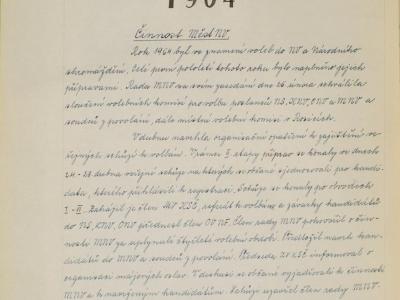 1964
Činnost Měst NV.
Rok 1964 byl ve znamení voleb do NV a Národního
shromáždění. Celé první pololetí tohoto roku bylo naplněno jejich
přípravami. Rada MNV na svém zasedání dne 26. února schválila
složení volebních komisí pro volbu poslanců NS, KNV, ONV a MNV a
soudců z povolání, dále místní volební komisi v Rosicích.
V dubnu navrhla organisační opatření k zajištění ve-
řejných schůzí k volbám. V rámci I. etapy příprav se konaly ve dnech
24.-28. dubna veřejné schůze na kterých se občané sjednocovali pro kandi-
dáta, kterého přihlásili k registraci. Schůze se konaly po obvodech
I - II. Zahájil je člen MV KSČ, referát k volbám a závazky kandidátů
do NS, KNV, ONV přednesl člen OV NF. Člen rady MNV pohovořil o čin-
nosti MNV za uplynulé čtyřleté volební období. Předložil návrh kan-
didátů do MNV a soudců z povolání. Předseda ZV KSČ informoval o
organisaci májových oslav. V diskusi se občané vyjadřovali k činnosti
MNV a k navrženým kandidátům. Schůzi uzavřel člen rady MNV.